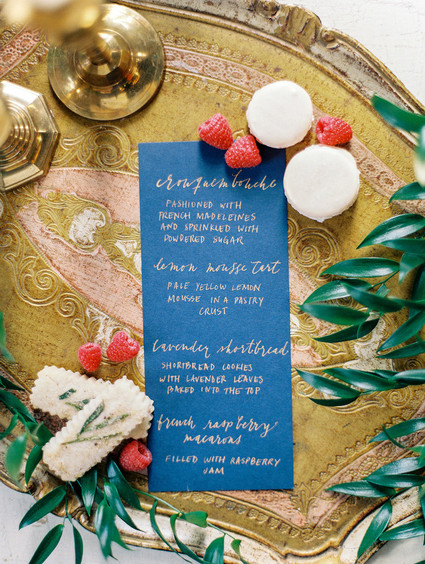 crouquembouche
FASHIONED WITH
FRENCH MADELEINES
AND SPRINKLED WITH
POWDERED SUGAR
lemon mousse tart
PALE YELLOW LEMON
MOUSSE IN A PASTRY
CRUST
lavender shortbread
SHORTBREAD COOKIES
WITH LAVENDER LEAVES
BAKED INTO THE TOP
french raspberry
macarons
FILLED WITH RASPBERRY
JAM